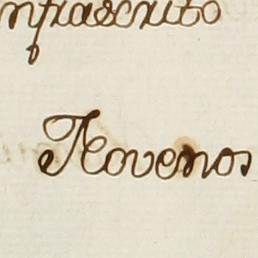 infrascrito
Novenos